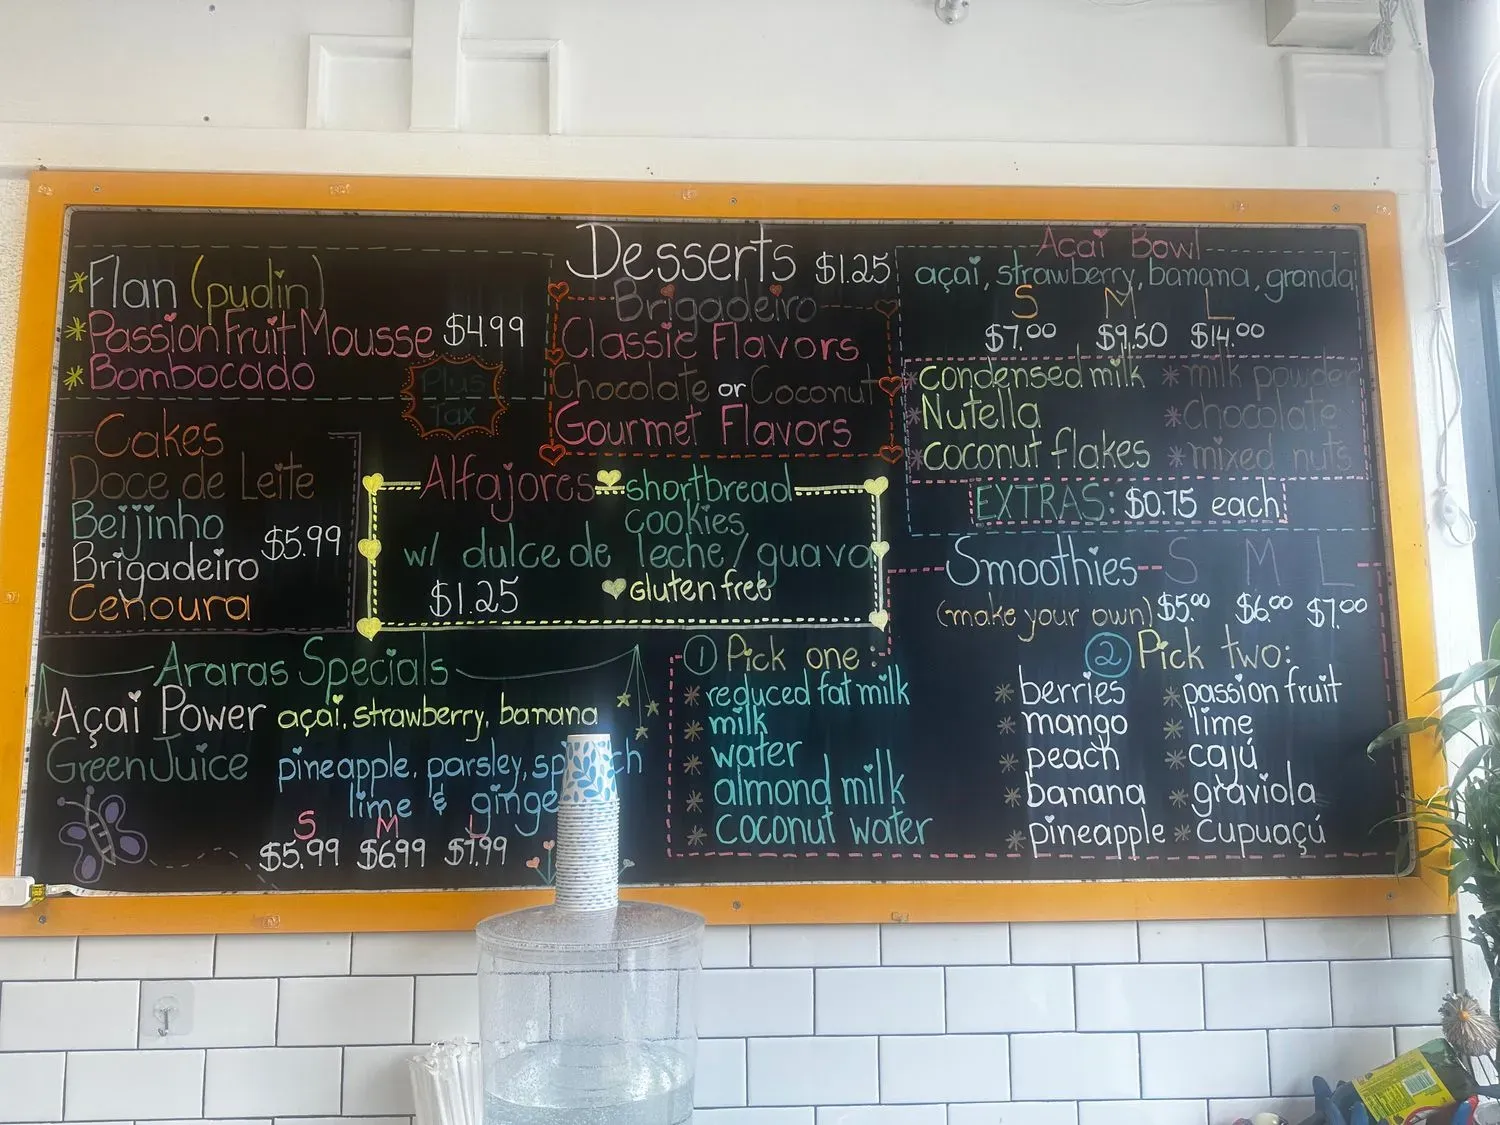 Desserts $1.25
Flan (pudin)
Passion Fruit Mousse $4.99
Bombocado
Plus
Tax
Brigadeiro
Classic Flavors
Chocolate or Coconut
Gourmet Flavors
Cakes
Doce de Leite
Beijinho
Brigadeiro $5.99
Cenoura
Alfajores shortbread
cookies
w/ dulce de leche/guava
$1.25 gluten free
Araras Specials
Açai Power açai, strawberry, banana
Green Juice pineapple, parsley,
lime &
S M L
$5.99 $6.99 $7.99
Açaí Bowl
açaí, strawberry, banana, granola
S M L
$7.00 $9.50 $14.00
*condensed milk *milk powder
*Nutella *chocolate
*coconut flakes *mixed nuts
EXTRAS: $0.75 each
Smoothies S M L
(make your own) $5.00 $6.00 $7.00
1 Pick one:
* reduced fat milk
* milk
* water
* almond milk
* coconut water
2 Pick two:
* berries * passion fruit
* mango * lime
* peach * cajú
* banana * graviola
* pineapple * cupuaçú